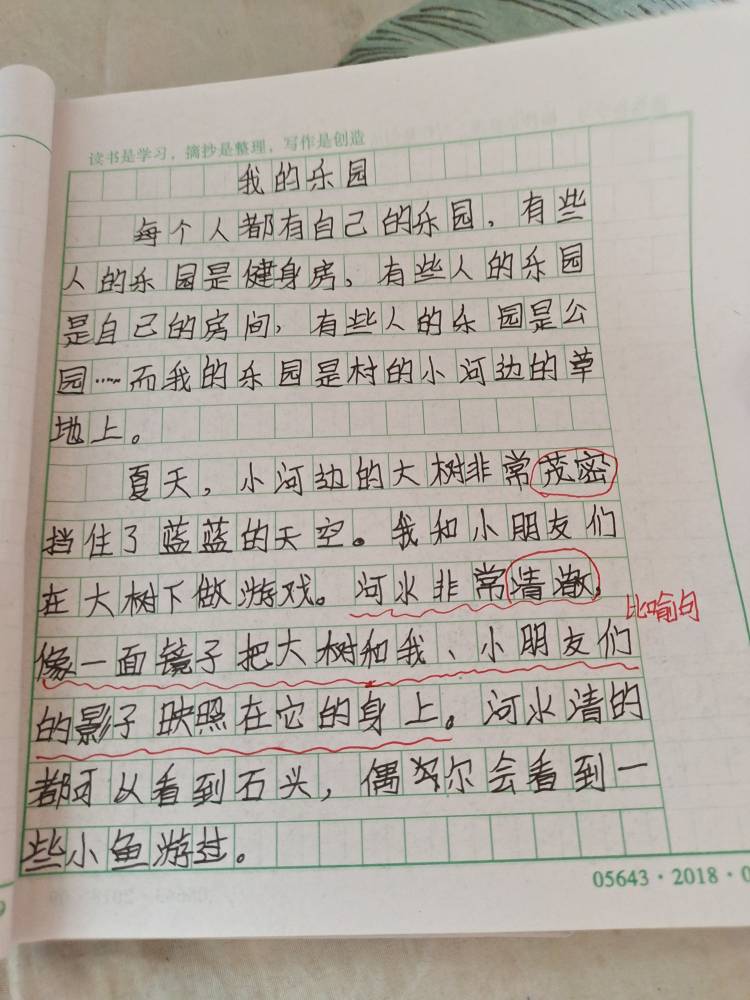 读书是学习，摘抄是整理，写作是创造
我的乐园
每个人都有自己的乐园，有些
人的乐园是健身房、有些人的乐园
是自己的房间，有些人的乐园是公
园……而我的乐园是村的小河边的草
地上。
夏天，小河边的大树非常茂密
挡住了蓝蓝的天空。我和小朋友们
在大树下做游戏。河水非常清澈，
比喻句
像一面镜子把大树和我、小朋友们
的影子映照在它的身上。河水清的
都可以看到石头，偶尔会看到一
些小鱼游过。
05643·2018·0